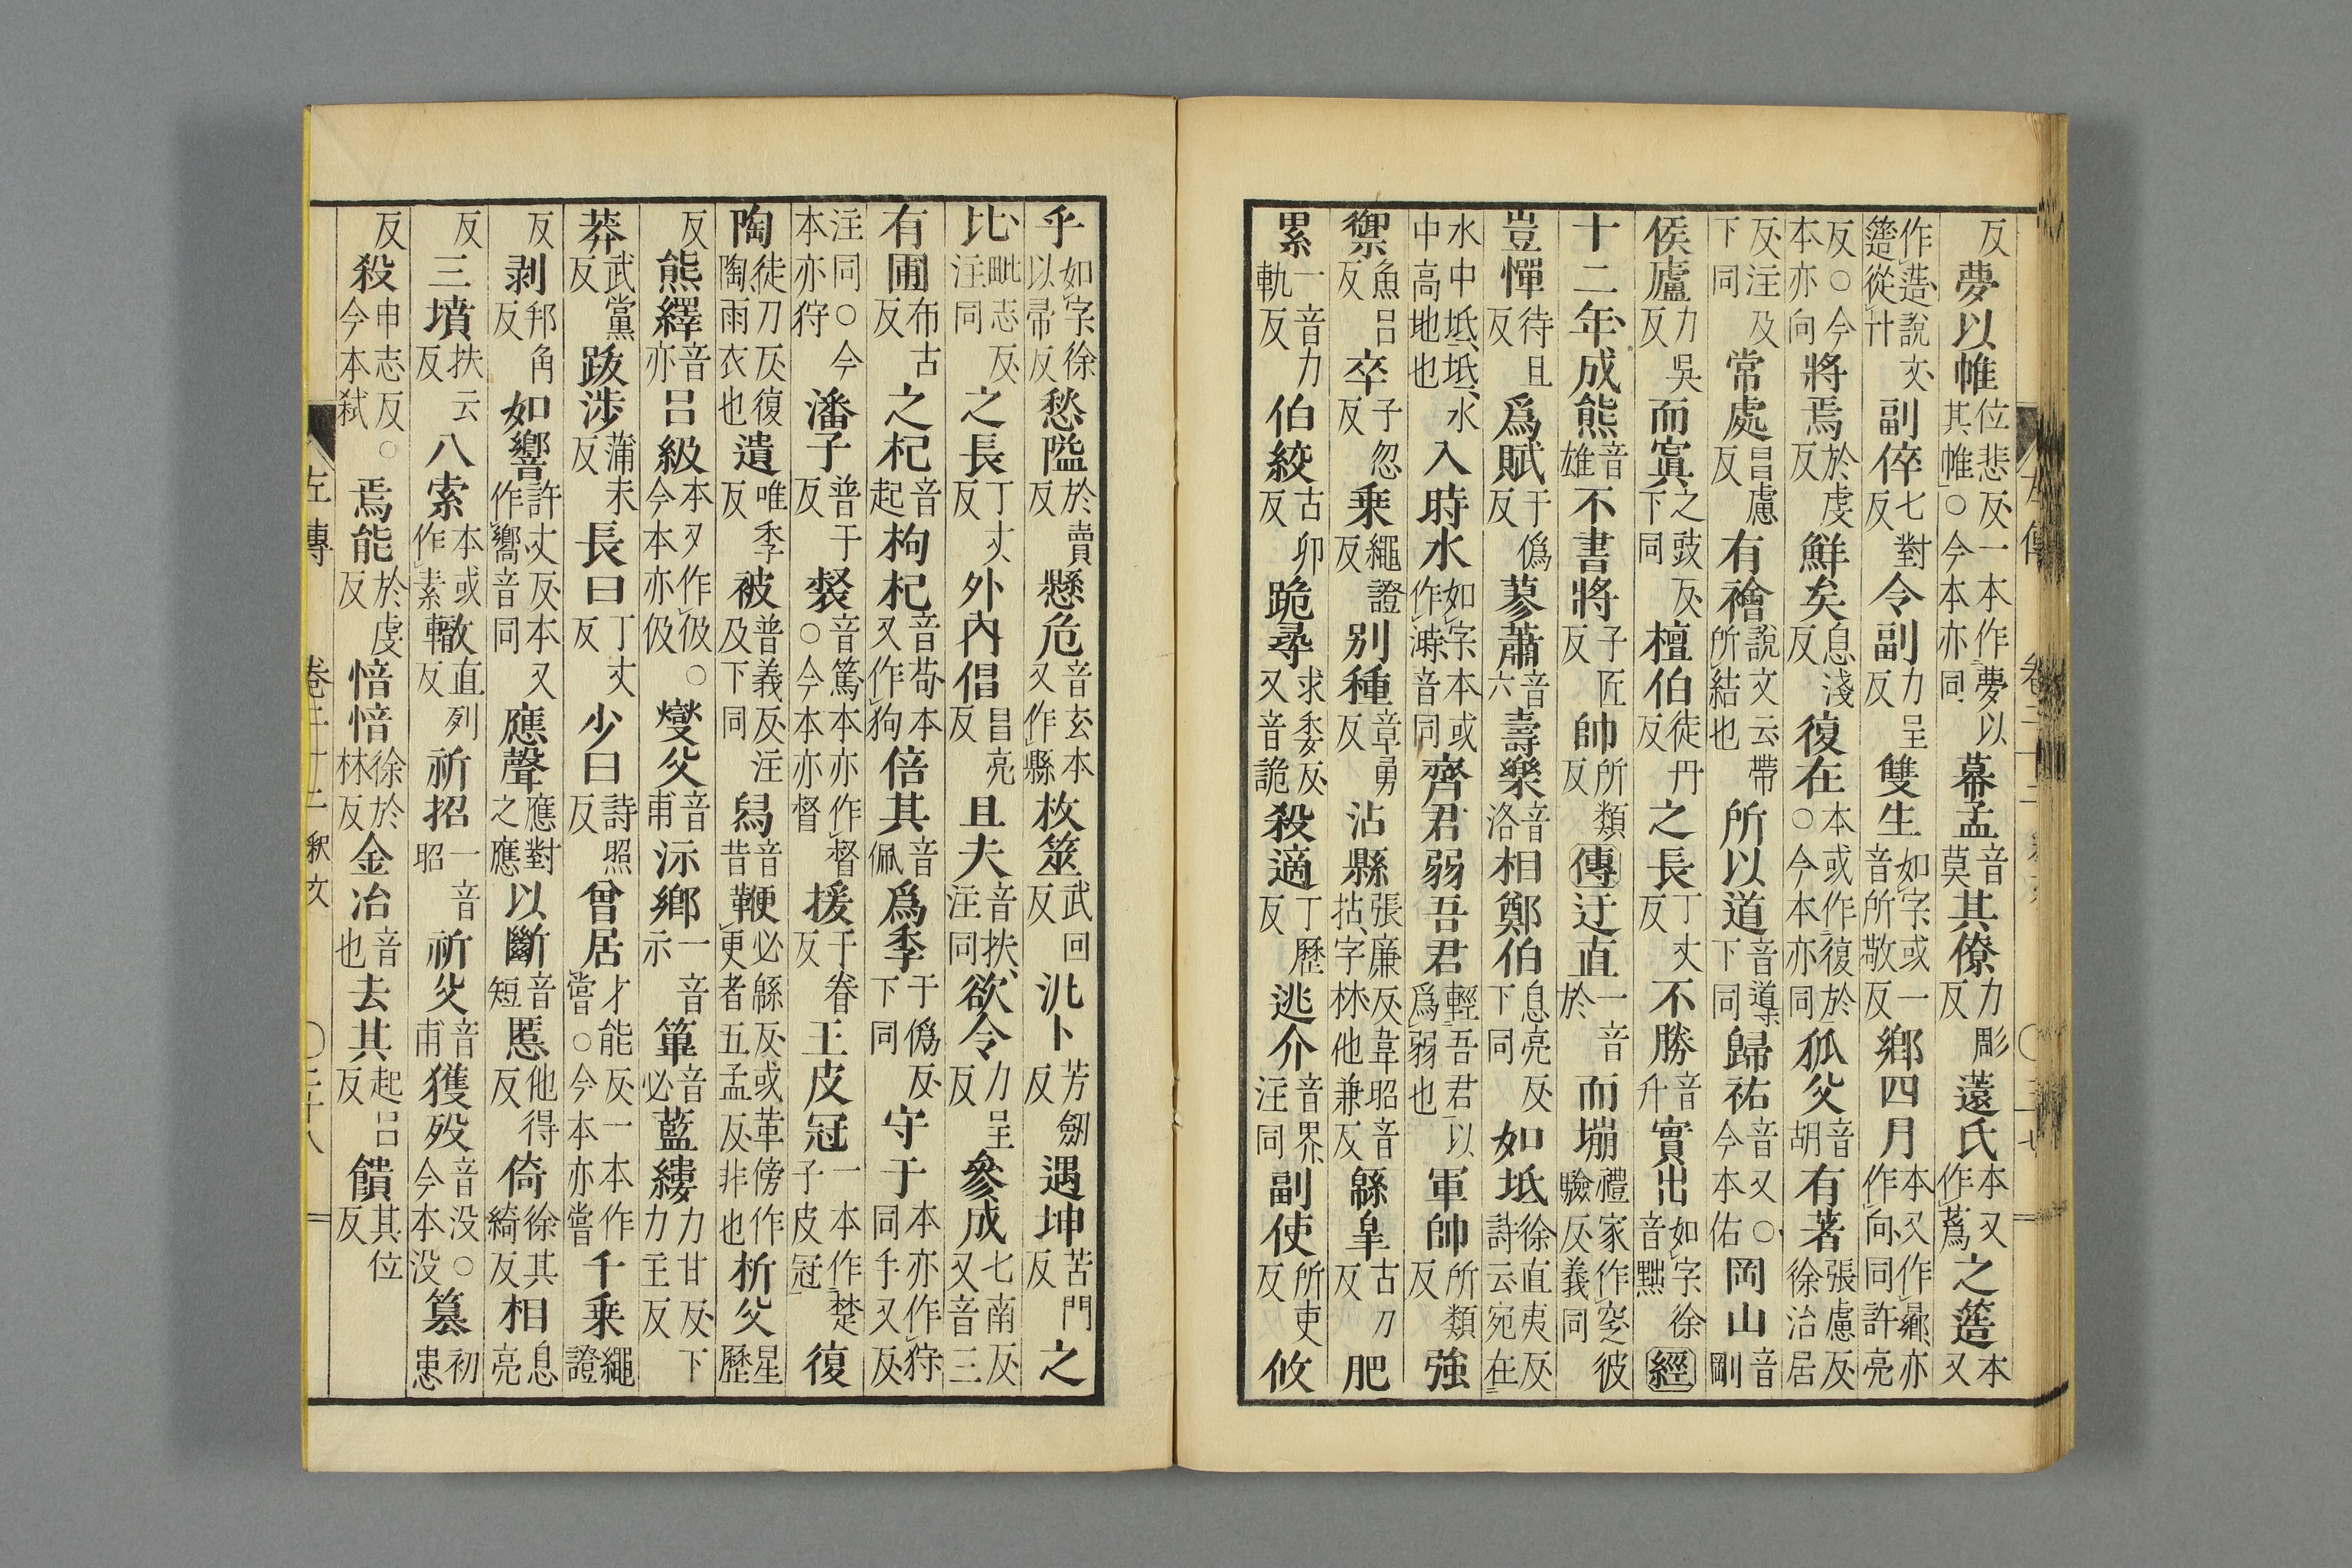 反夢以帷位悲反一本作夢以其帷○今本亦同幕孟音莫其僚力彫反薳氏本又作蒍之簉本又
作造說文簉從竹副倅七對反令副力呈反雙生如字或一音所敬反鄉四月本又作曏亦作向同許亮
反○今本亦向將焉於虔反鮮矣息淺反復在本或作復於○今本亦同狐父音胡有著張慮反徐治居
反注及下同常處昌慮反有襘說文云帶所結也所以道音導下同歸祐音又○今本佑岡山音剛
侯廬力吳反而寘之豉反下同檀伯徒丹反之長丁丈反不勝音升實出如字徐音黜經
十二年成熊音雄不書將子匠反帥所類反傳迂直一音於而塴禮家作窆彼驗反義同
豈憚待旦反爲賦于僞反蓼蕭音六壽樂音洛相鄭伯息亮反下同如坻徐直夷反詩云宛在
水中坻坻水中高地也入時水如字本或作溡音同齊君弱吾君輕吾君以爲弱也軍帥所類反強
禦魚呂反卒子忽反乗繩證反别種章勇反沾縣張廉反韋昭音拈字林他兼反緜皋古刀反肥
累一音力軌反伯絞古卯反跪尋求委反又音詭殺適丁歷反逃介音界注同副使所吏反攸
乎如字徐以帚反愁隘於賣反懸危音玄本又作縣枚筮武回反汎卜芳劔反遇坤苦門反之
比毗志反注同之長丁丈反外內倡昌亮反且夫音扶注同欲令力呈反參成七南反又音三
有圃布古反之杞音起枸杞音苟本又作狗倍其音佩爲季于僞反下同守于本亦作狩同手又反
注同○今本亦狩潘子普于反裻音篤本亦作督○今本亦督援于眷反王皮冠一本作楚子皮冠復
陶徒刀反復陶雨衣也遺唯季反被普義反注及下同舄音昔鞭必緜反或革傍作更者五孟反非也析父星歷
反熊繹音亦呂級本又作伋○今本亦伋燮父音甫沶鄉一音示篳音必藍縷力甘反下力主反
莽武黨反跋涉蒲末反長曰丁丈反少曰詩照反曾居才能反一本作嘗○今本亦嘗千乗繩證
反剥邦角反如響許丈反本又作嚮音同應聲應對之應以斷音短慝他得反倚徐其綺反相息亮
反三墳扶云反八索本或作素轍直列反祈招一音昭祈父音甫獲歿音没○今本没篡初患
反殺申志反○今本弑焉能於虔反愔愔徐於林反金冶音也去其起呂反饋其位反
左傳 卷二十二釈文 ○二十八